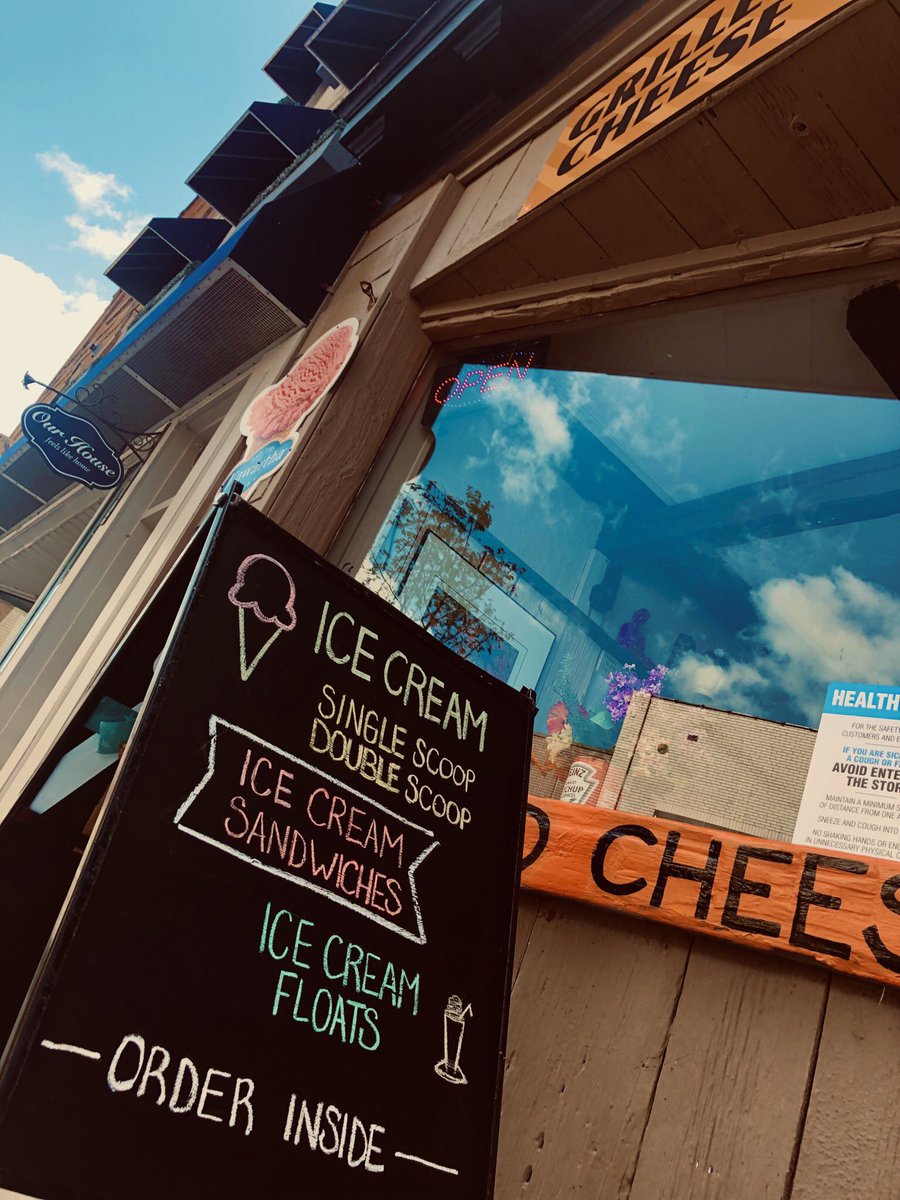 GRILLE
CHEESE
OPEN
Our House
feels like home
ICE CREAM
SINGLE SCOOP
DOUBLE SCOOP
ICE CREAM
SANDWICHES
ICE CREAM
FLOATS
ORDER INSIDE
HEINZ
CHUP
D CHEES
HEALTH
FOR THE SAFETY
CUSTOMERS AND E
IF YOU ARE SIC
A COUGH OR F
AVOID ENTE
THE STOR
MAINTAIN A MINIMUM S
OF DISTANCE FROM ONE A
SNEEZE AND COUGH INTO
NO SHAKING HANDS OR EN
IN UNNECESSARY PHYSICAL C